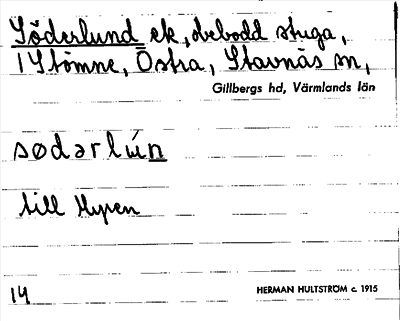 Söderlund ek, obebodd stuga,
1 Stömne, Östra, Stavnäs sn,
Gillbergs hd, Värmlands län
sødərlún
till Myren
14
HERMAN HULTSTRÖM c. 1915